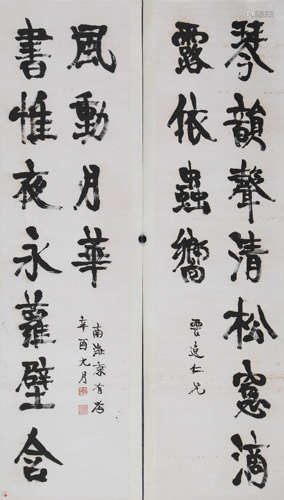 琴韻聲清松窻滴
露依蟲響
仁兄
書帷夜永蘿壁含
風動月華
辛酉九月
南海康有為